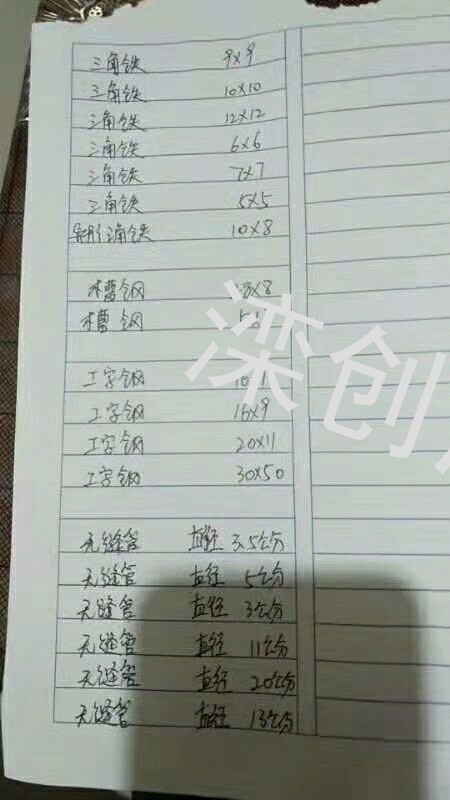 三角铁 9×9
三角铁 10×10
三角铁 12×12
三角铁 6×6
三角铁 7×7
三角铁 5×5
异形三角铁 10×8
槽钢 ×8
槽钢
工字钢
工字钢 16×9
工字钢 20×11
工字钢 30×50
无缝管 直径 3.5公分
无缝管 直径 5公分
无缝管 直径 3公分
无缝管 直径 11公分
无缝管 直径 20公分
无缝管 直径 13公分
滦创